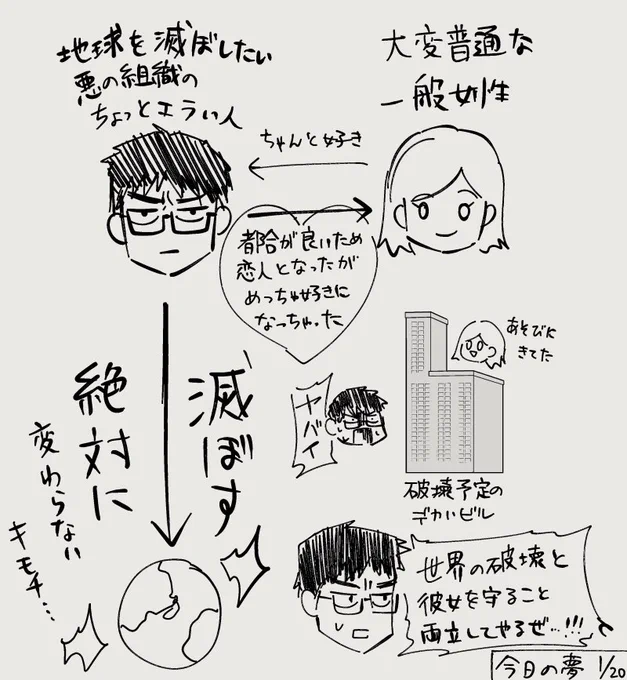 地球を滅ぼしたい
悪の組織の
ちょっとエラい人
大変普通な
一般女性
ちゃんと好き
都合が良いため
恋人となったが
めっちゃ好きに
なっちゃった
滅ぼす
絶対に
変わらない
キモチ…
あそびに
きてた
ヤバイ
破壊予定の
デカいビル
世界の破壊と
彼女を守ること
両立してやるぜ…!!!
今日の夢 1/20